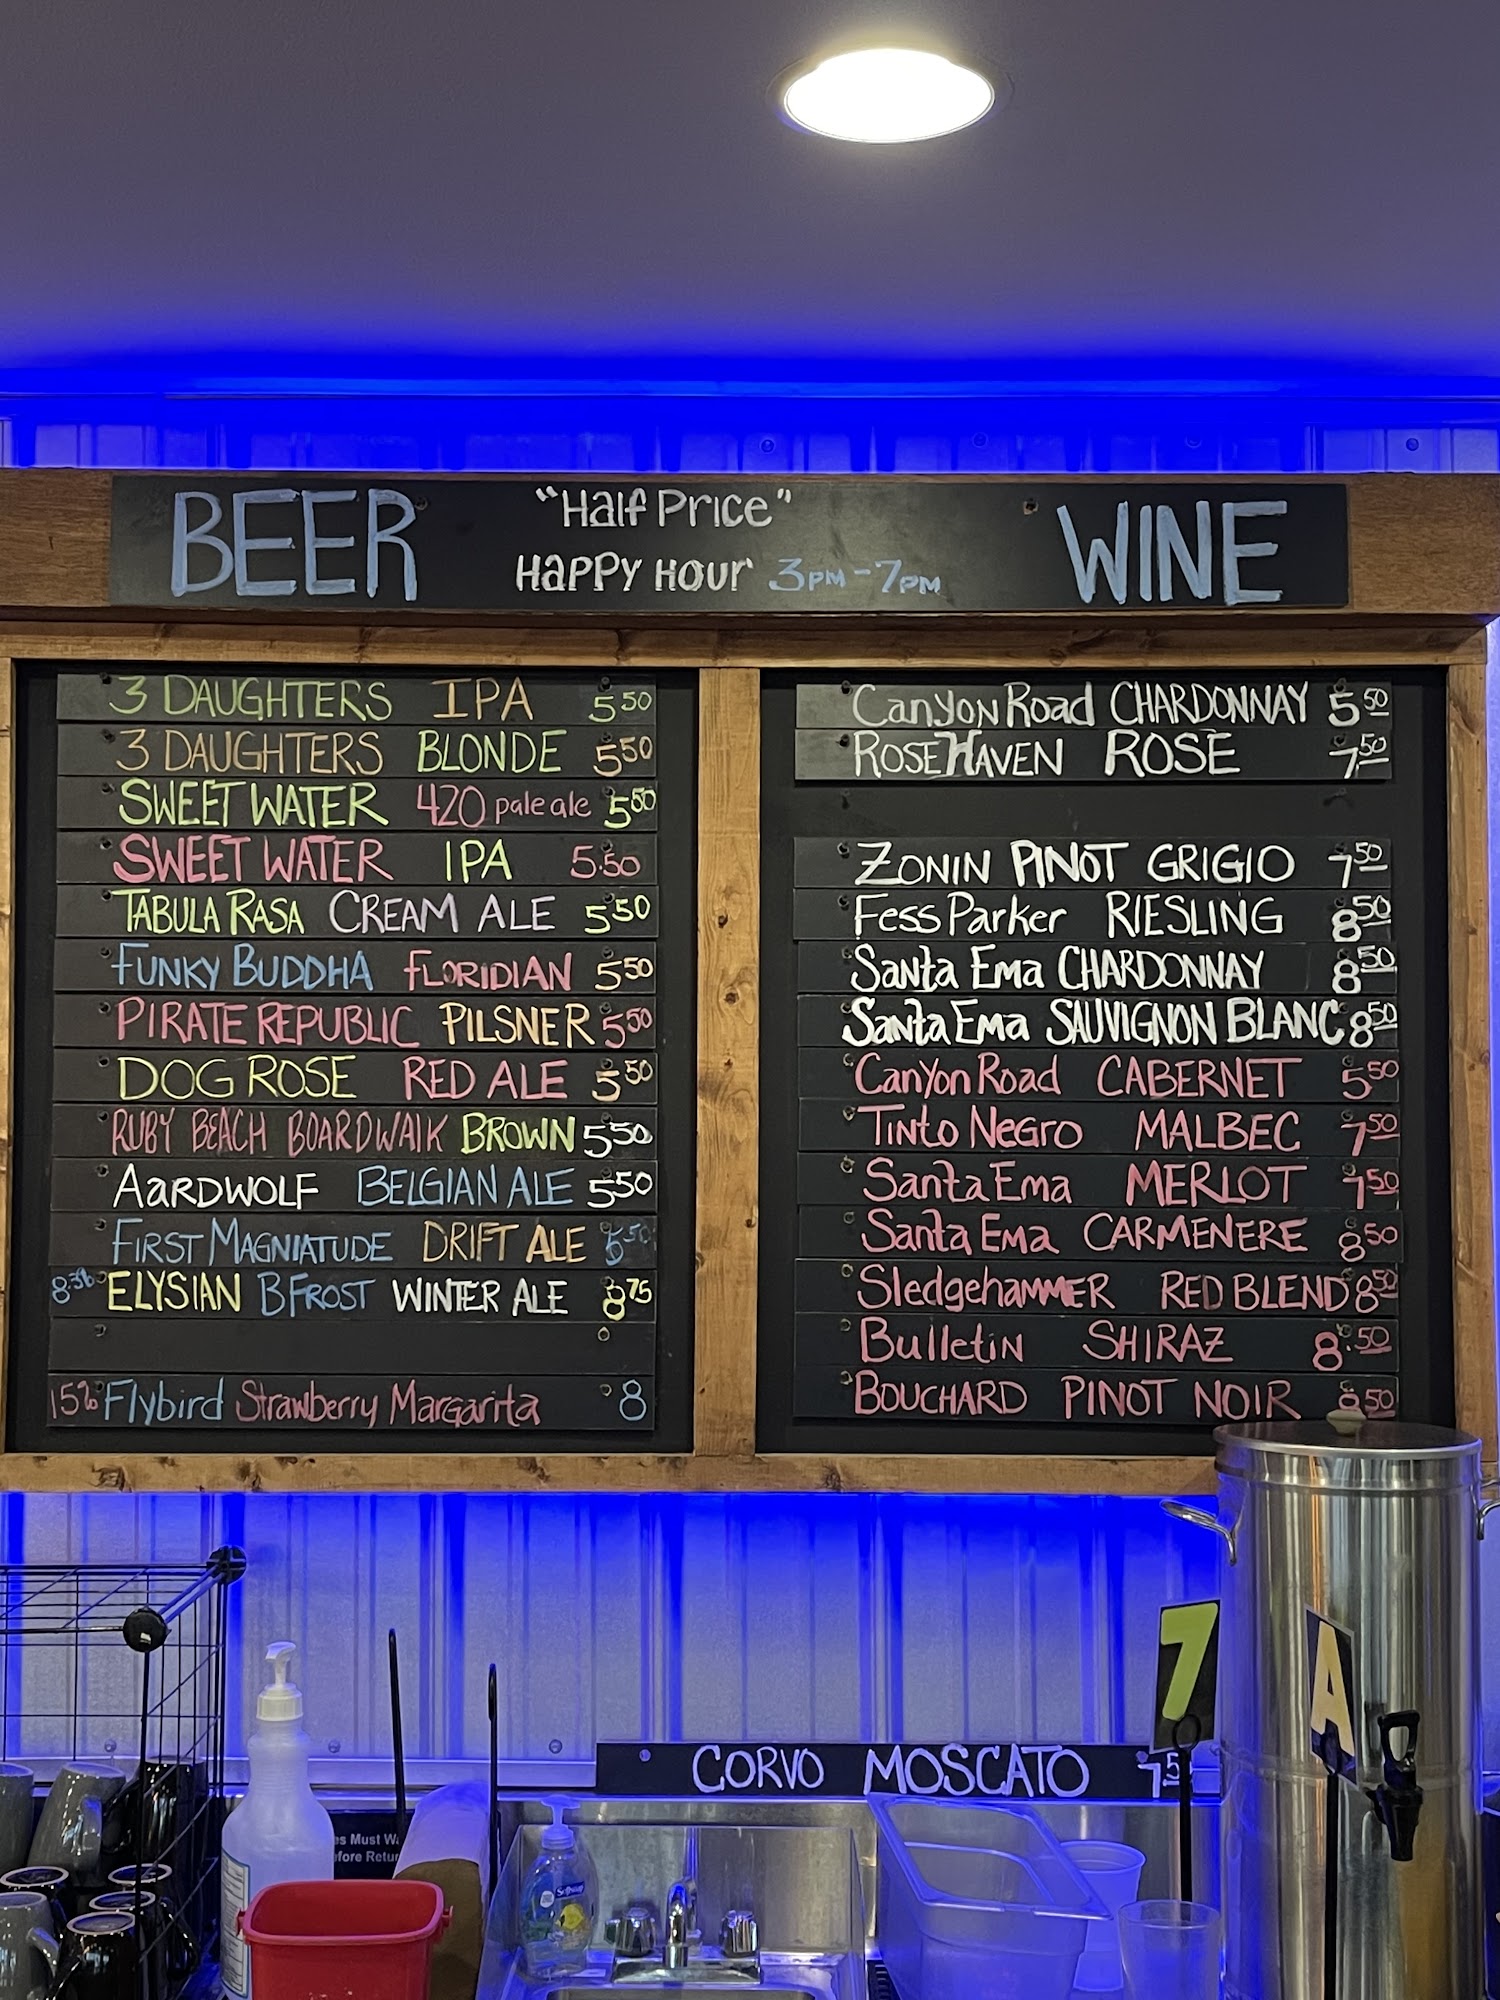 BEER
"Half Price"
HAPPY HOUR 3PM-7PM
WINE
3 DAUGHTERS IPA 5.50
3 DAUGHTERS BLONDE 5.50
SWEET WATER 420 pale ale 5.50
SWEET WATER IPA 5.50
TABULA RASA CREAM ALE 5.50
FUNKY BUDDHA FLORIDIAN 5.50
PIRATE REPUBLIC PILSNER 5.50
DOG ROSE RED ALE 5.50
RUBY BEACH BOARDWALK BROWN 5.50
AARDWOLF BELGIAN ALE 5.50
FIRST MAGNIATUDE DRIFT ALE
ELYSIAN BFROST WINTER ALE 8.75
15% Flybird Strawberry Margarita 8
Canyon Road CHARDONNAY 5.50
ROSEHAVEN ROSE 7.50
ZONIN PINOT GRIGIO 7.50
Fess Parker RIESLING 8.50
Santa Ema CHARDONNAY 8.50
Santa Ema SAUVIGNON BLANC 8.50
Canyon Road CABERNET 5.50
Tinto Negro MALBEC 7.50
Santa Ema MERLOT 7.50
Santa Ema CARMENERE 8.50
Sledgehammer RED BLEND 8.50
Bulletin SHIRAZ 8.50
BOUCHARD PINOT NOIR 8.50
7
A
CORVO MOSCATO 7.5
es Must Wa
fore Retur
Softsoap